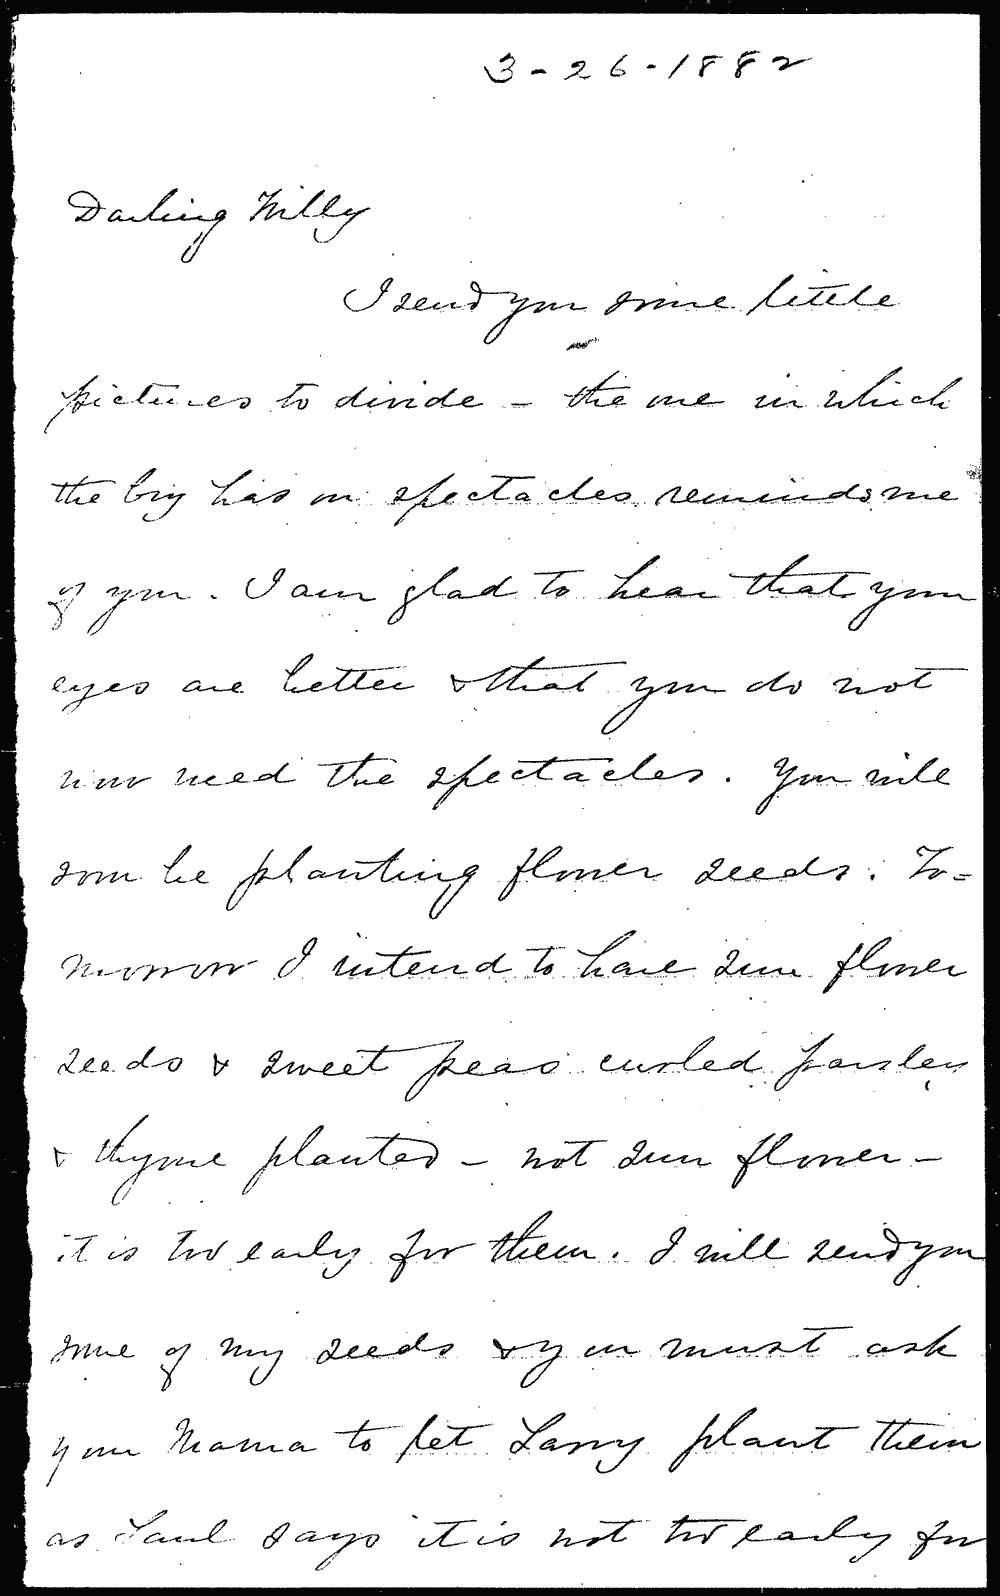 3-26-1882
Darling Willy
I send you some little
pictures to divide - the one in which
the boy has on spectacles reminds me
of you. I am glad to hear that your
eyes are better & that you do not
now need the spectacles. You will
soon be planting flower seeds. To=
morrow I intend to have sun flower
seeds & sweet peas curled parsley
& thyme planted - not sun flower -
it is too early for them. I will send you
some of my seeds & you must ask
your Mama to let Larry plant them
as Paul says it is not too early for